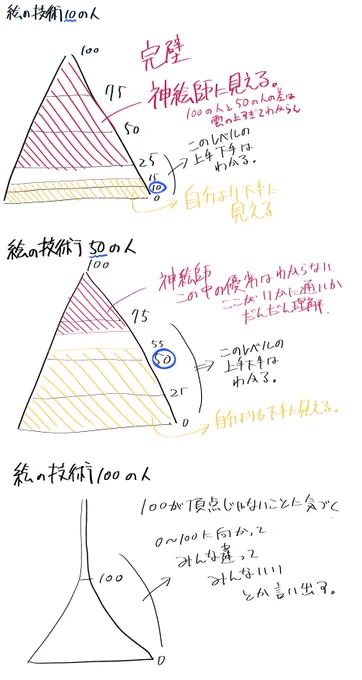 絵の技術10の人
100
完璧
75
神絵師に見える。
100の人と50の人の差は
雲の上すぎてわからん
50
25
このレベルの
上手下手は
わかる。
15
10
0
自分より下手に
見える
絵の技術50の人
100
神絵師
この中の優劣はわからない
ここがいかに遠いか
だんだん理解
75
55
50
このレベルの
上手下手は
わかる。
25
0
自分よりも下手に見える。
絵の技術100の人
100が頂点じゃないことに気づく
0〜100に向かって
みんな違って
みんないい
とか言い出す。
100
0